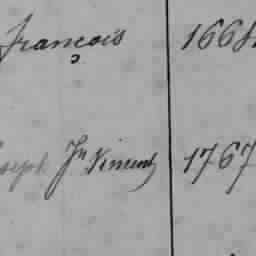 François 1668
Jn Vincent 1767